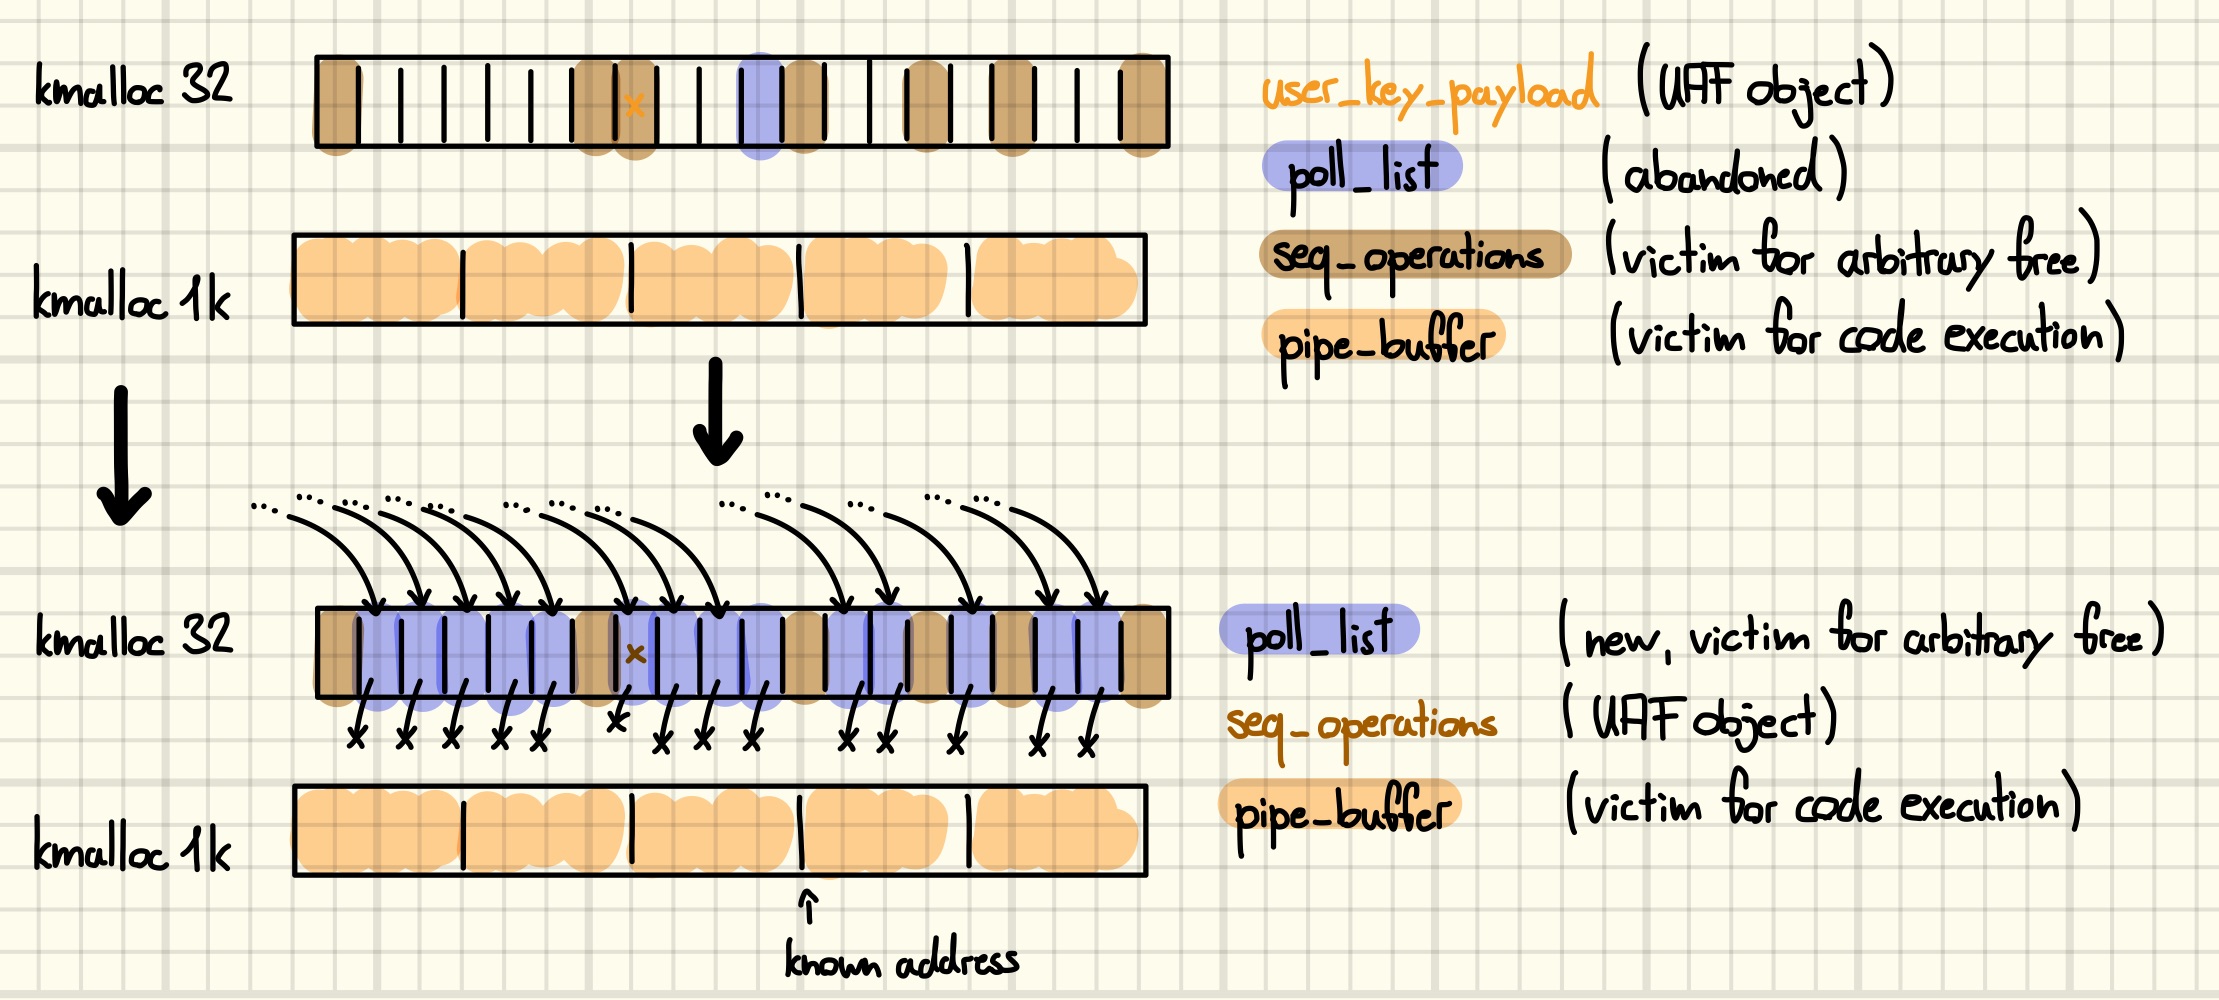 kmalloc 32
user_key_payload (UAF object)
poll_list (abandoned)
seq_operations (victim for arbitrary free)
kmalloc 1k
pipe_buffer (victim for code execution)
kmalloc 32
poll_list (new, victim for arbitrary free)
seq_operations (UAF object)
kmalloc 1k
pipe_buffer (victim for code execution)
known address